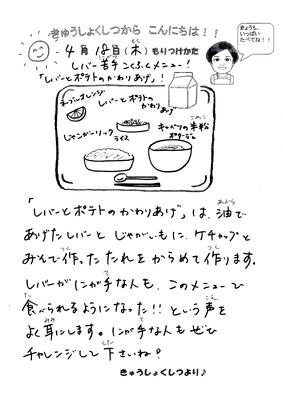 きゅうしょくしつから こんにちは!!
きょうも、
いっぱい
たべてね!!
4月18日(木) もりつけかた
レバー苦手こくふくメニュー!
「レバーとポテトのかわりあげ」!
ネーブルオレンジ
レバーとポテトの
かわりあげ
じゃこガーリック
ライス
キャベツの米粉
こめこ
ポタージュ
「レバーとポテトのかわりあげ」は、油で
あぶら
あげたレバーと じゃがいもに、ケチャップと
みそで作ったたれを からめて作ります。
つく
つく
レバーがにが手な人も、このメニューで
て
食べられるようになった!!という声を
た
こえ
よく耳にします。にが手な人も ぜひ
みみ
て
チャレンジして下さいね♪
くだ
きゅうしょくしつより♪